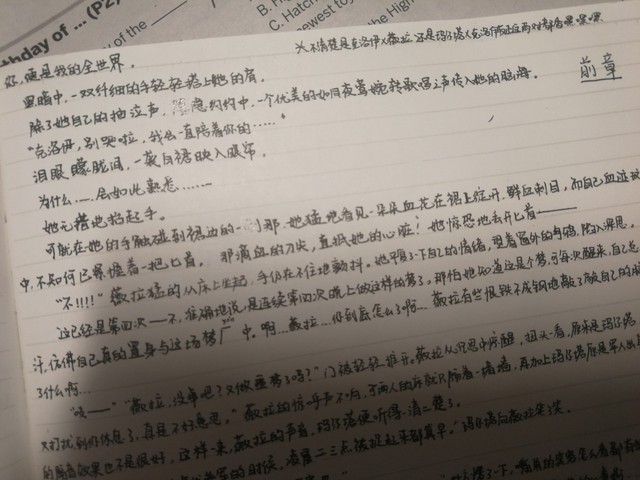 thday of ... (P2)
of the
B. H
C. Hatch
ewest to
the High
前章
你,便是我的全世界。
黑暗中,一双纤细的手轻轻搭上她的肩。
除了她自己的抽泣声,隐隐约约中,一个优美的如同夜莺婉转歌唱之声传入她的脑海。
“克洛伊,别哭啦,我会一直陪着你的……”
泪眼朦胧间,一袭白裙映入眼帘。
为什么……会如此熟悉……
她无措地抬起手。
可就在她的手触碰到裙边的一刹那,她猛地看见一朵朵血花在裙上绽开,鲜血刺目,而自己血迹
中,不知何时已紧握着一把匕首。那滴血的刀尖,直抵她的心脏!她惊恐地丢开匕首——
“不!!!!”薇拉猛的从床上坐起,手仍在不住地颤抖。她平复了一下自己的情绪,望着窗外的月色,陷入深思。
这已经是第四次——不,准确地说,是连续第四次晚上做这样的梦了。那怕她知道这是个梦,可每次醒来,自己总
汗,仿佛自己真的置身与这场梦中。啊…薇拉…你到底怎么了啊…薇拉有些恨铁不成钢地敲了敲自己的
了什么啊…
“吱——”“薇拉,没事吧?又做噩梦了吗?”门被轻轻推开。薇拉从沉思中惊醒,扭头一看,原来是玛
又打扰到你休息了,真是不好意思。”薇拉的惊呼声不响,于两人的床就只隔着一堵墙,再加上玛
的隔音效果也不是很好,这样一来,薇拉的声音,玛便听得一清二楚了。
的时候,凌晨二三点被捉起来都真早。”玛向薇拉笑了笑。